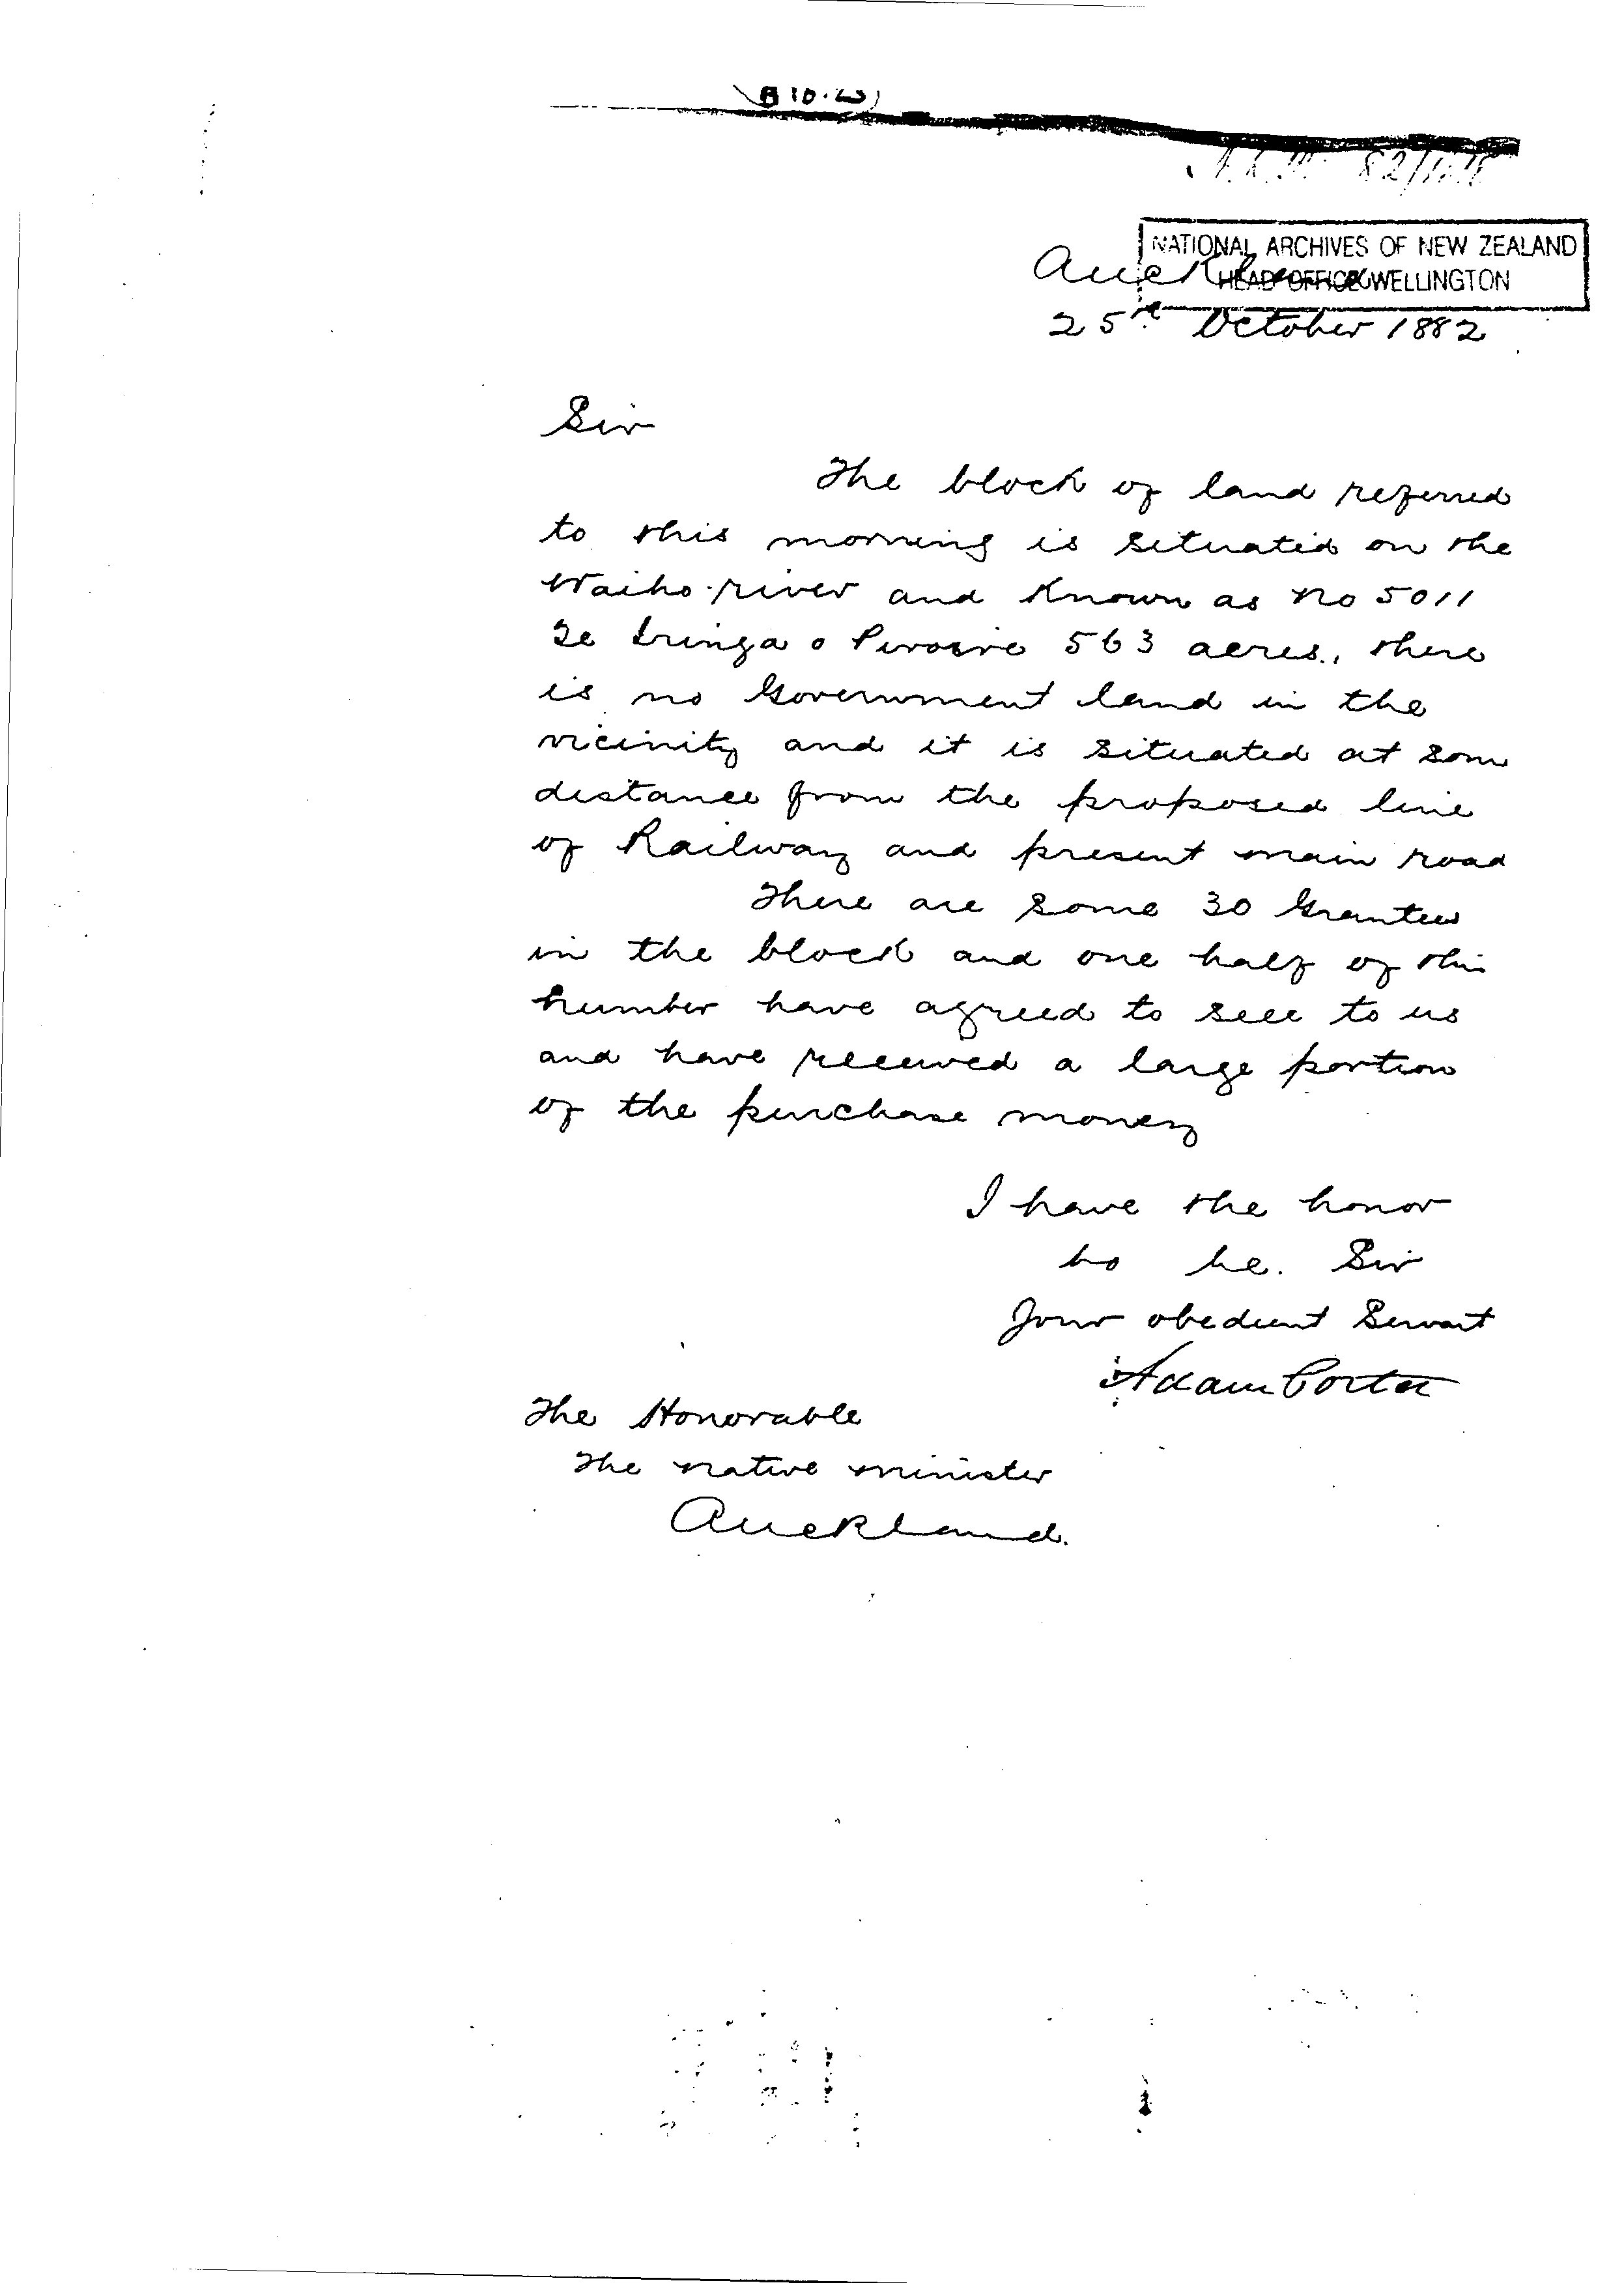 NATIONAL ARCHIVES OF NEW ZEALAND
HEAD OFFICE WELLINGTON
Auckland
25th October 1882
Sir
The block of land referred
to this morning is situated on the
Waiho river and known as No 5011
Te 563 acres., there
is no Government land in the
vicinity and it is situated at some
distance from the proposed line
of Railway and present main road
There are some 30 Grantees
in the block and one half of this
number have agreed to sell to us
and have received a large portion
of the purchase money
I have the honor
to be. Sir
Your obedient Servant
Adam Porter
The Honorable
The native minister
Auckland.